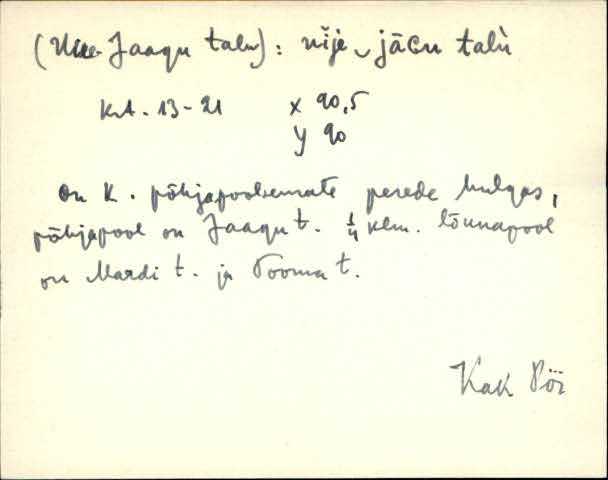 (Uue-Jaagu talu): uǐje ⌣ jāGu talù
Krt. - 13 - 21 x 90,5
y 90
on K. põhjapoolsemate perede hulgas,
põhjapool on Jaagu t. 1/4 klm. lõunapool
on Mardi t. ja Tooma t.
Kak Pöi